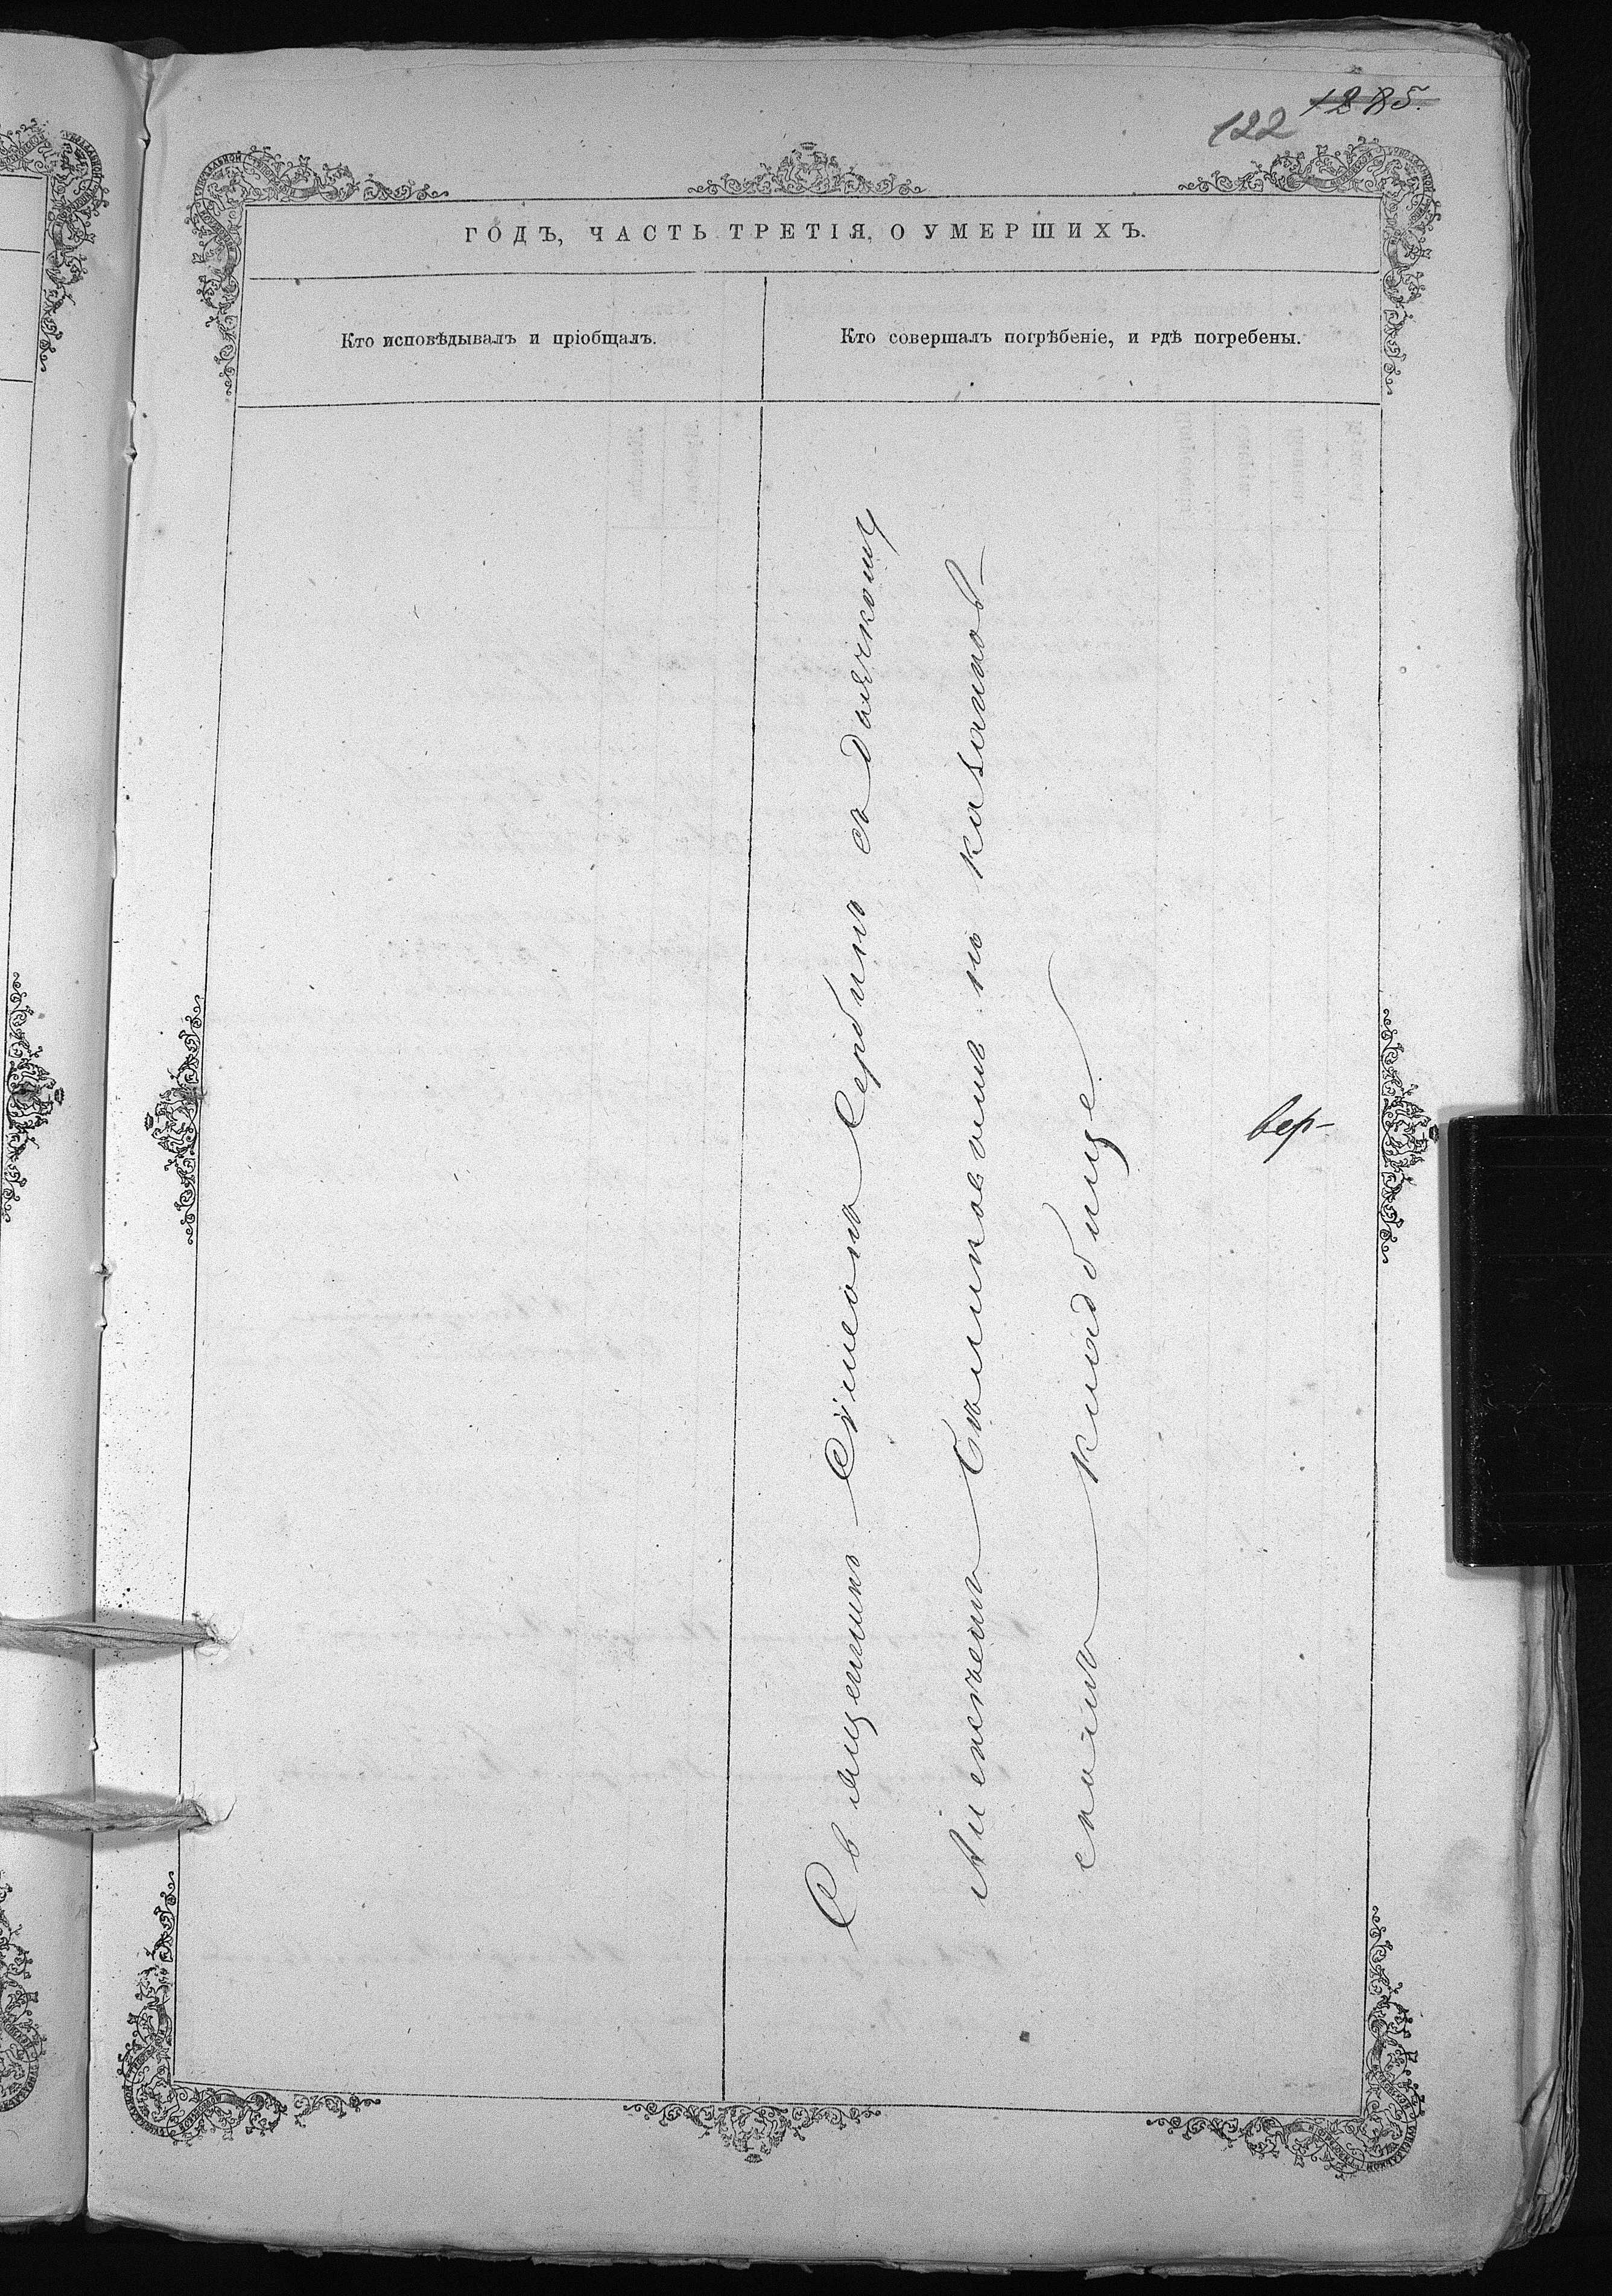 122 1285.
ГОДЪ, ЧАСТЬ ТРЕТІЯ, О УМЕРШИХЪ.
Кто исповѣдывалъ и пріобщалъ.
Кто совершалъ погрѣбеніе, и гдѣ погребены.
Священникъ Сѵмеонъ Сербинъ съ Дьячкомъ
Алексѣемъ на казанов-
скомъ кладбище
вер-